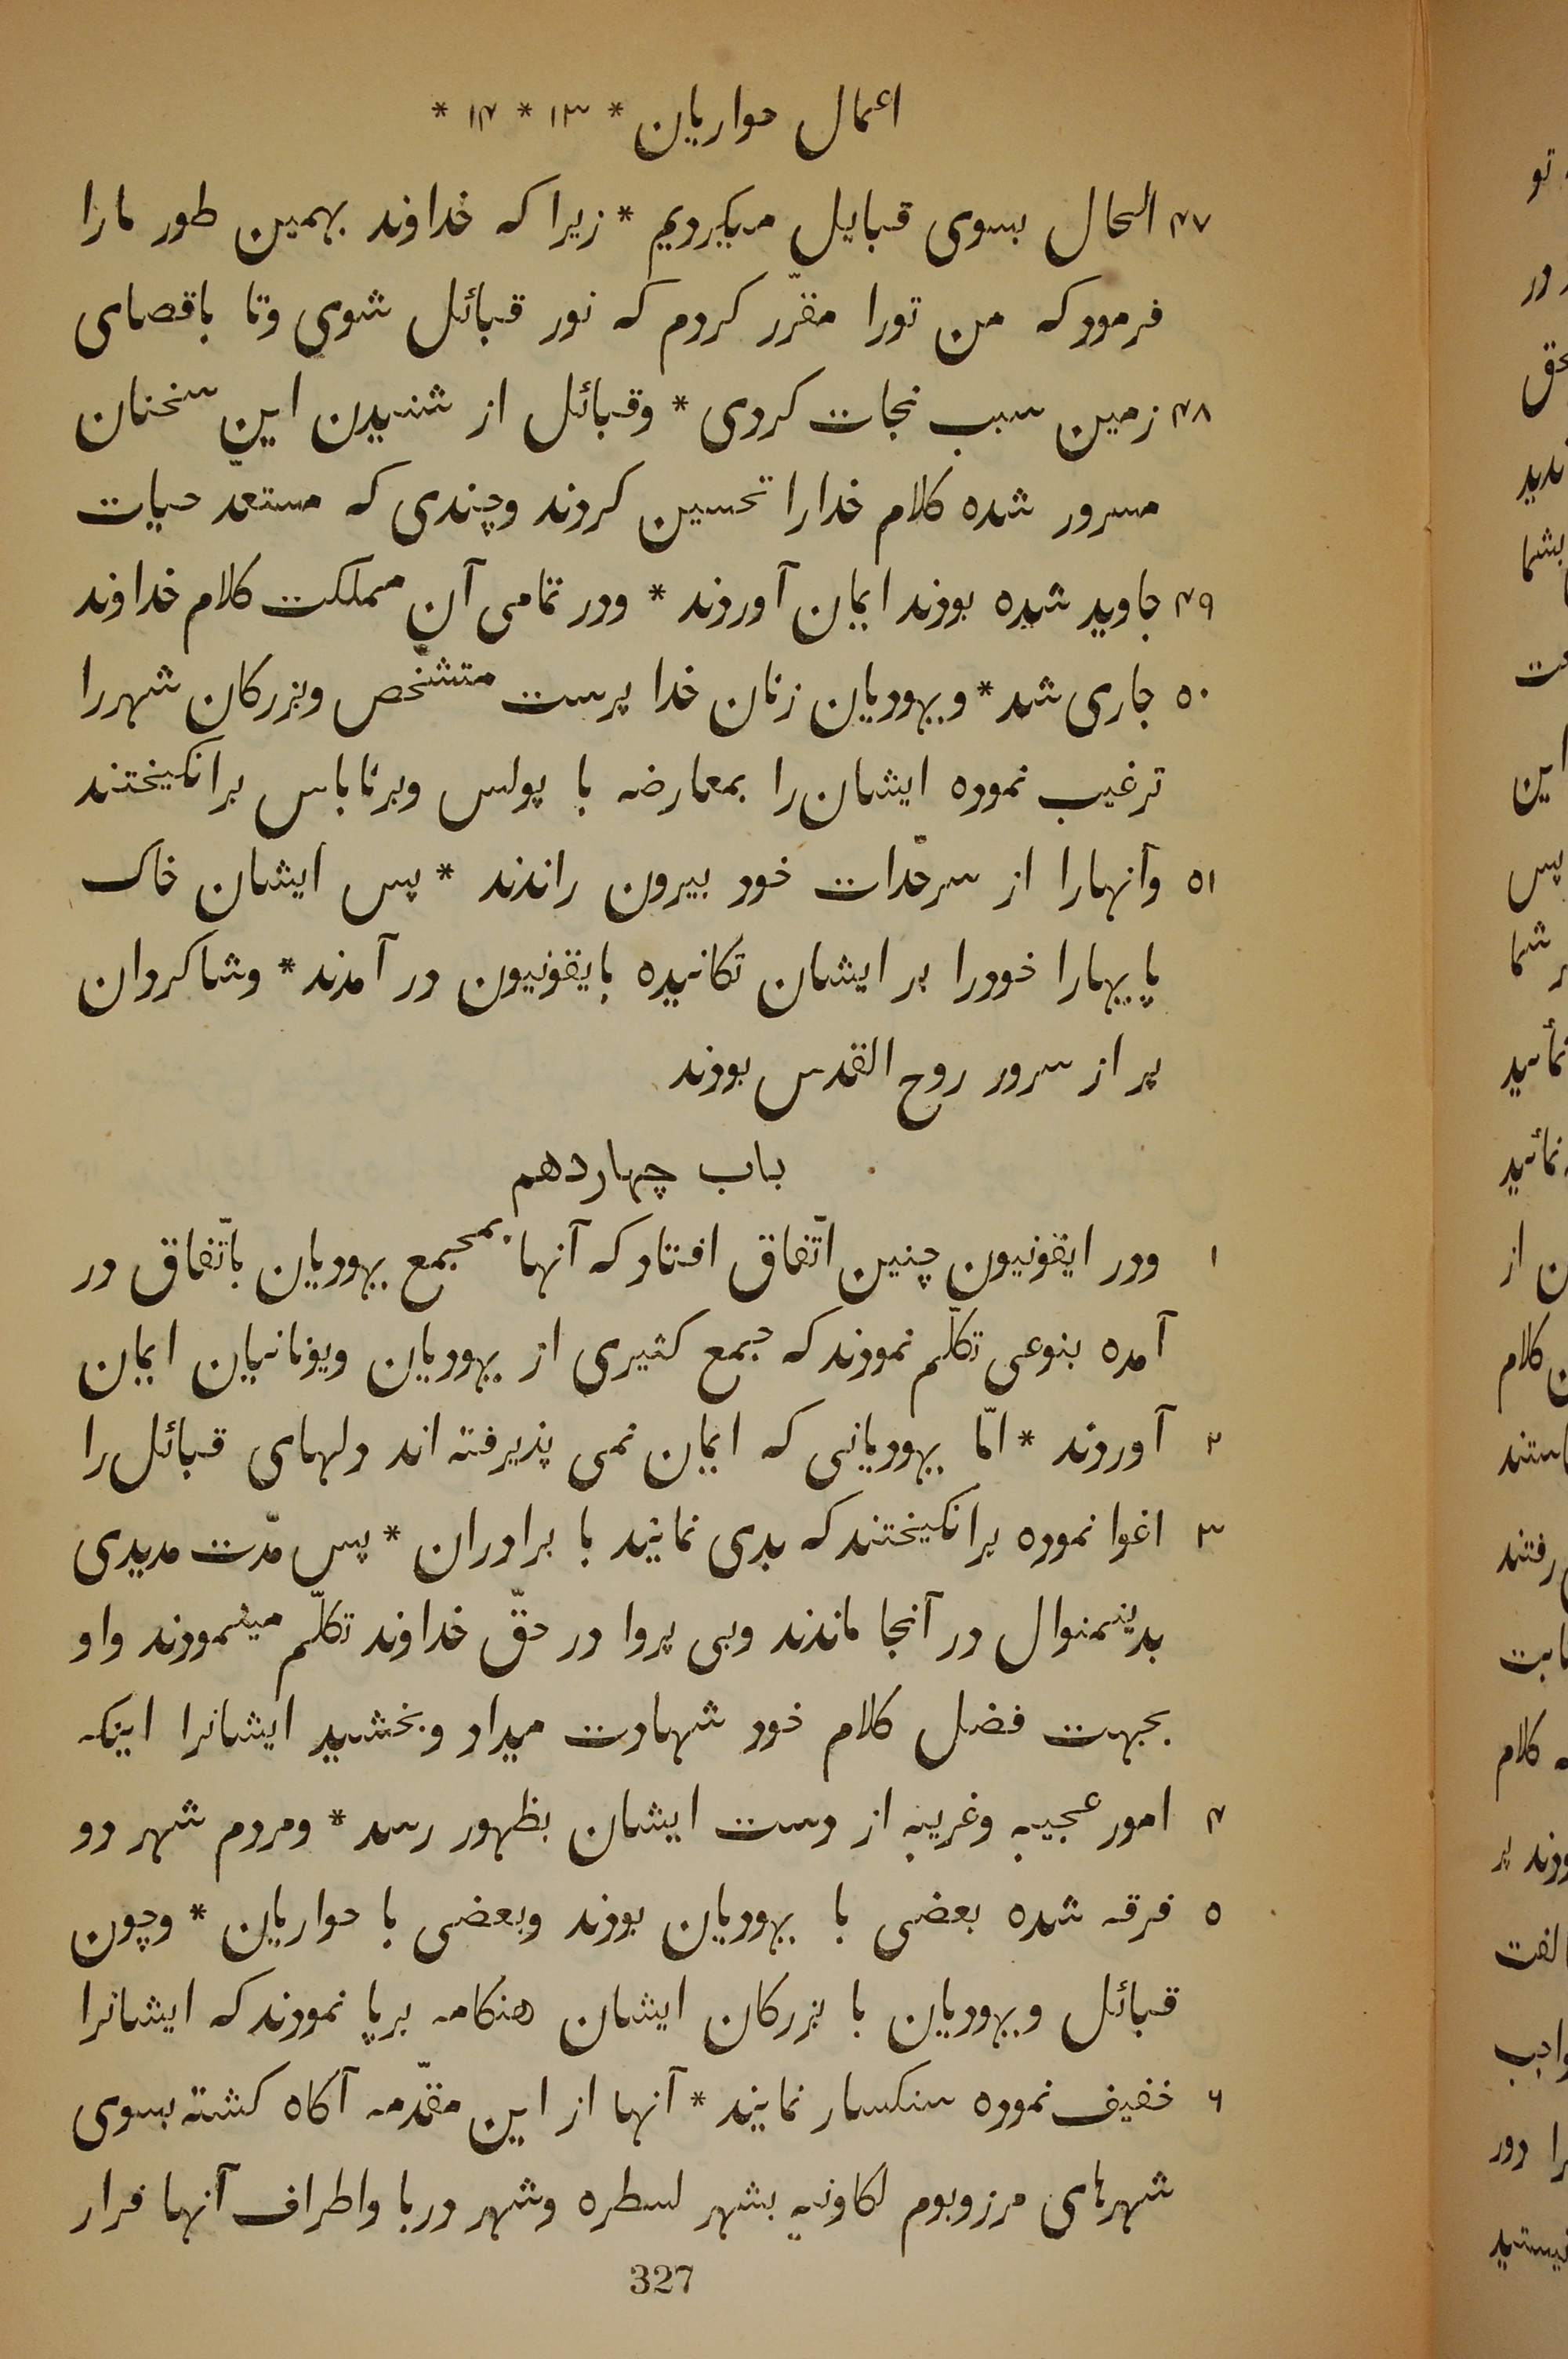 اعمال حواریان * ۱۳ * ۱۴ *
۴۷ الحال بسوی قبایل میکردیم * زیرا که خداوند بهمین طور مارا
فرمود که من تورا مقرّر کردم که نور قبائل شوی وتا باقصای
۴۸ زمین سبب نجات کردی * وقبائل از شنیدن این سخنان
مسرور شده کلام خدارا تحسین کردند وچندی که مستعدّ حیات
۴۹ جاوید شده بودند ایمان آوردند * ودر تمامی آن مملکت کلام خداوند
۵۰ جاری شد * ویهودیان زنان خدا پرست متشخّص وبزرکان شهررا
ترغیب نموده ایشان را بمعارضه با پولس وبرناباس برانکیختند
۵۱ وآنهارا از سرحدّات خود بیرون راندند * پس ایشان خاک
پایهارا خودرا بر ایشان تکانیده بایقونیون در آمدند * وشاکردان
پر از سرور روح القدس بودند
باب چهاردهم
۱ ودر ایقونیون چنین اتّفاق افتاد که آنها بمجمع یهودیان باتّفاق در
آمده بنوعی تکلّم نمودند که جمع کثیری از یهودیان ویونانیان ایمان
۲ آوردند * امّا یهودیانی که ایمان نمی پذیرفته اند دلهای قبائل را
۳ اغوا نموده برانکیختند که بدی نمایند با برادران * پس مدّت مدیدی
بدینمنوال در آنجا ماندند وبی پروا در حقّ خداوند تکلّم مینمودند واو
بجهت فضل کلام خود شهادت میداد وبخشید ایشانرا اینکه
۴ امور عجیبه وغریبه از دست ایشان بظهور رسد * ومردم شهر دو
۵ فرقه شده بعضی با یهودیان بودند وبعضی با حواریان * وچون
قبائل ویهودیان با بزرکان ایشان هنکامه برپا نمودند که ایشانرا
۶ خفیف نموده سنکسار نمایند * آنها از این مقدّمه آکاه کشته بسوی
شهرهای مرزوبوم لکاونیه بشهر لسطره وشهر دربا واطراف آنها فرار
327